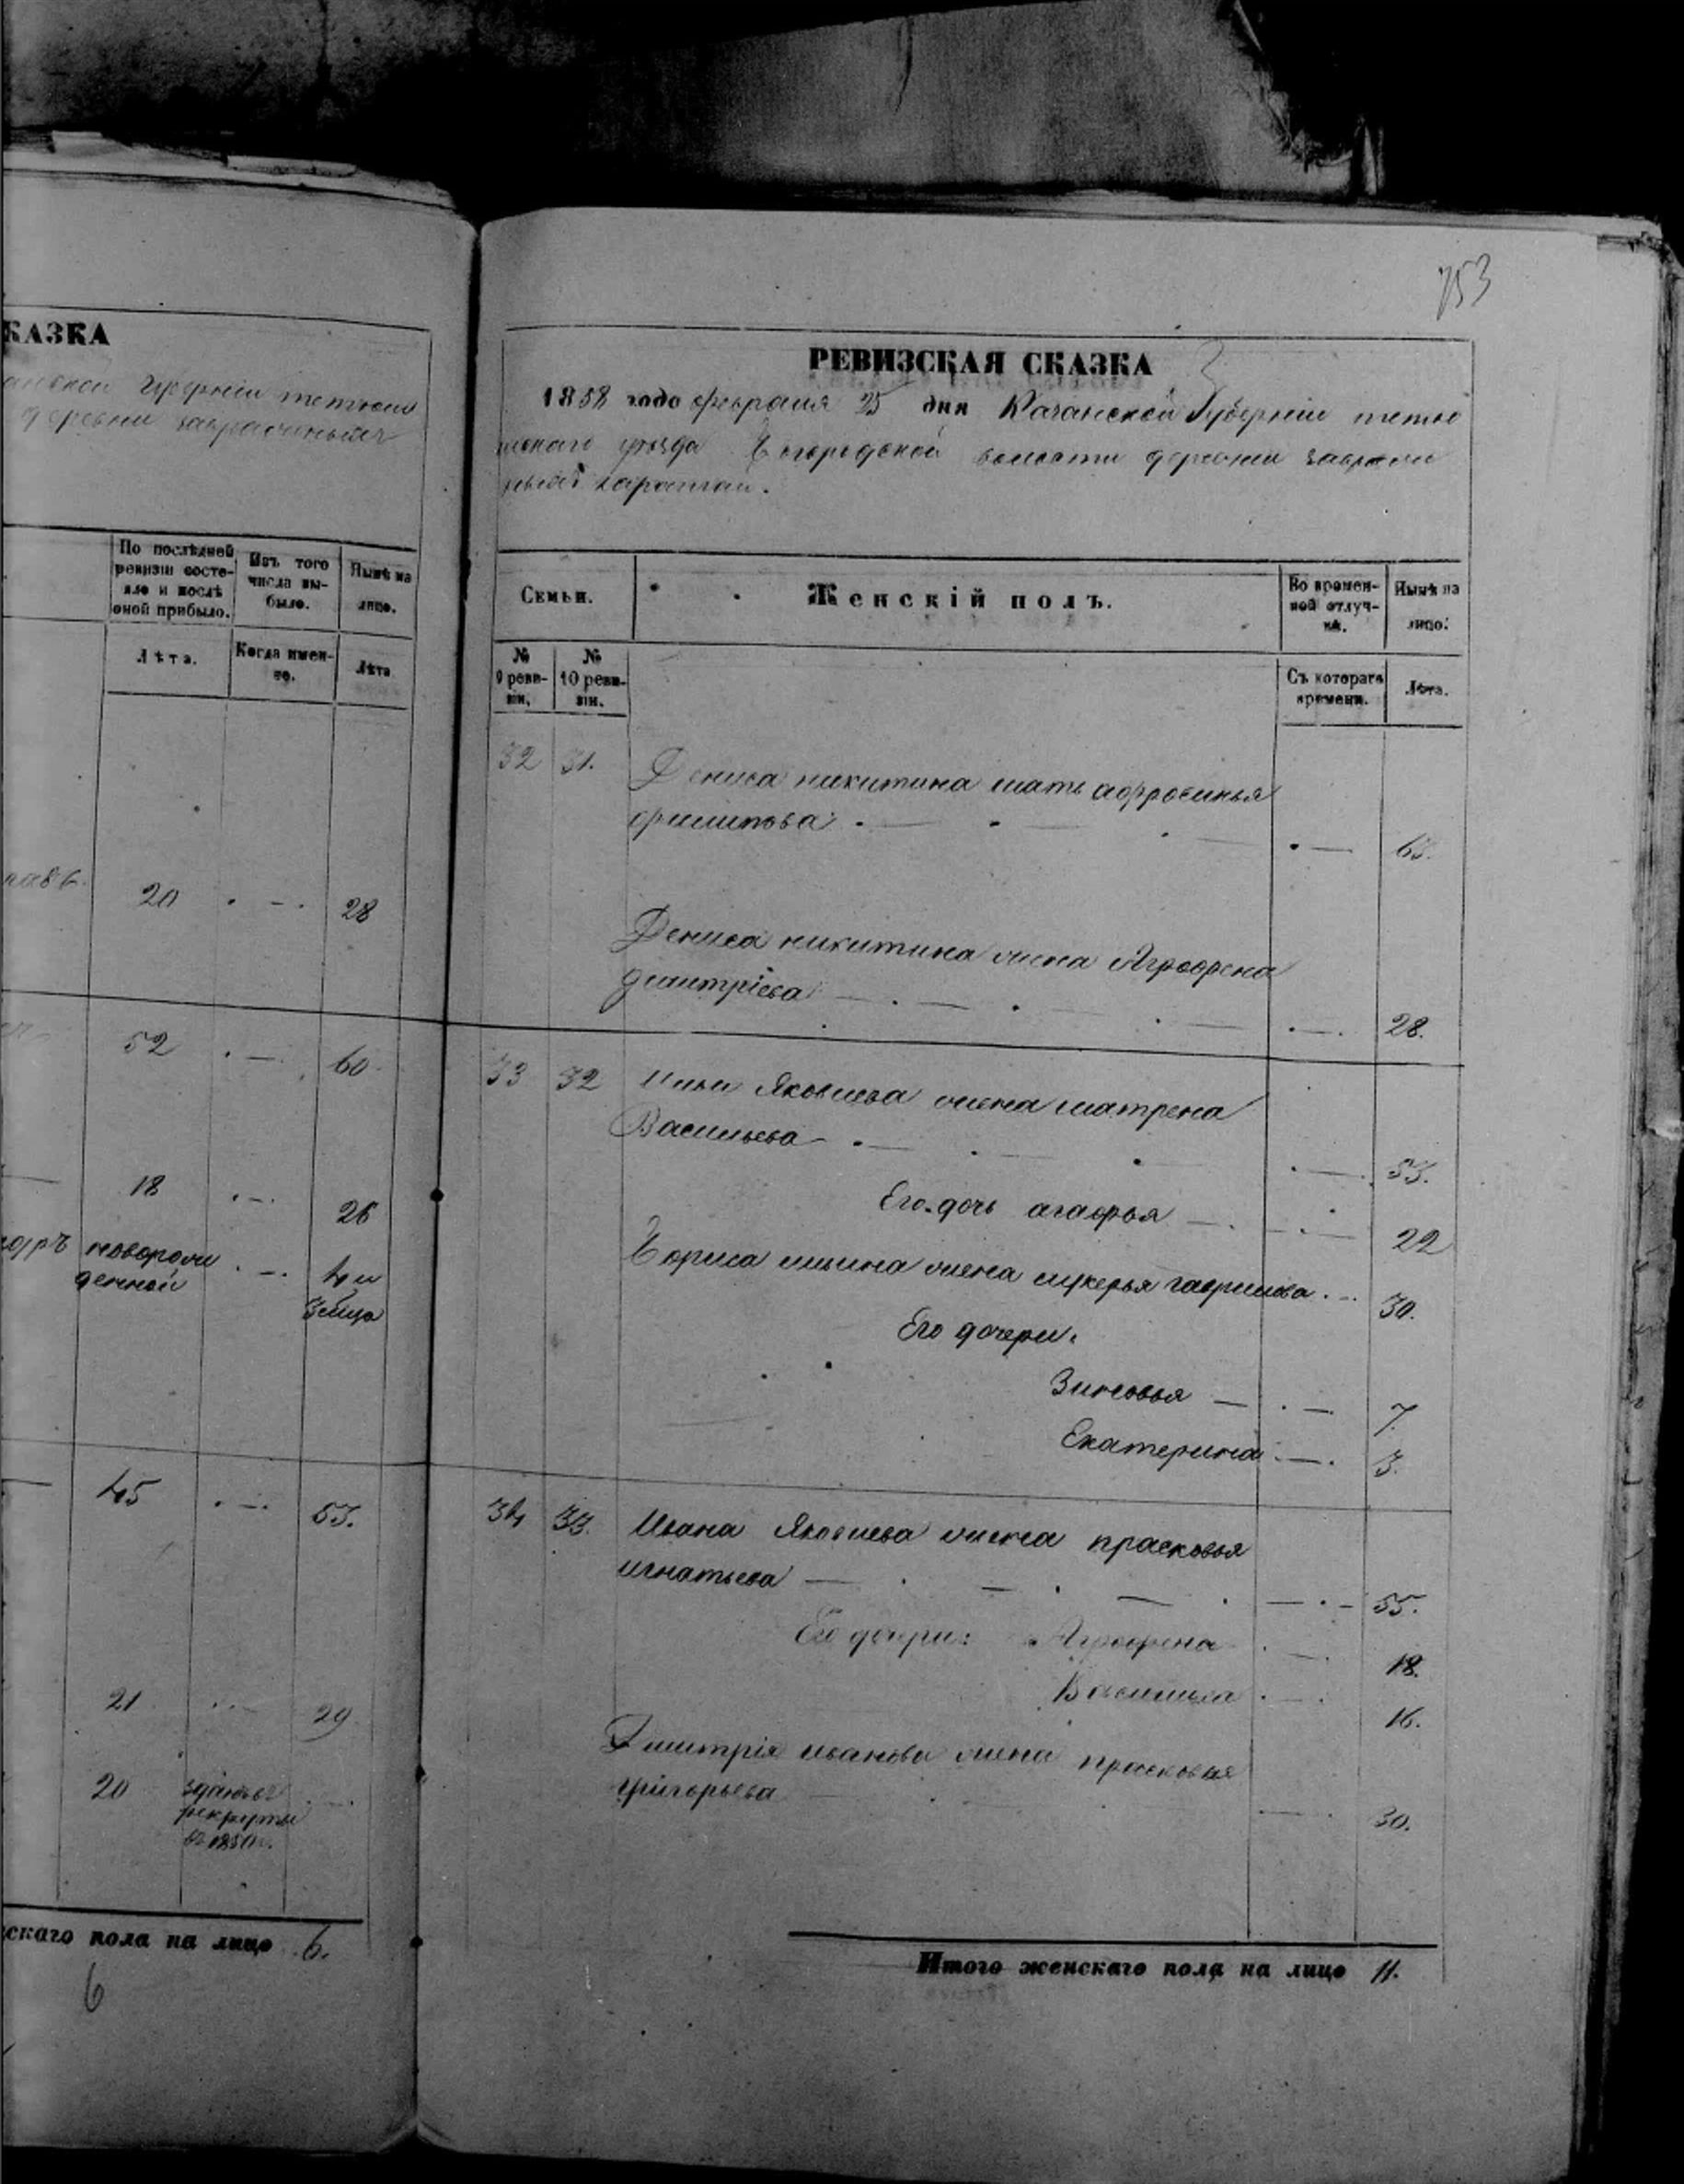 753
КАЗКА
губерніи тетюш
деревни
По послѣдней ревизіи состояло и послѣ оной прибыло.
Изъ того числа выбыло.
Нынѣ на лицо.
Лѣта.
Когда именно.
Лѣта
20 . - . 28
52 . — . 60
18 . - . 26
новорожденной . - . 4 и
45 . - . 53.
21 . . - 29
20
рекруты
въ 1850 г.
скаго пола на лицо 6.
6
РЕВИЗСКАЯ СКАЗКА
1858 года февраля 25 дня Казанской Губерніи тетю
шскаго уѣзда Богородской волости деревни
Семьи.
Женскій полъ.
Во временной отлучкѣ.
Нынѣ на лицо.
№ 9 ревизіи.
№ 10 ревизіи.
Съ котораго времени.
Лѣта.
32 31. Дениса никитина мать афросинья
филипова . — . — . — 63.
Дениса никитина жена Аграфена
дмитріева — . — . — . — . — . 28.
33 32 Ильи Яковлева жена матрена
Васильева — . — . — . — . — 53.
Его дочь агафья — . — . — 22
Бориса ильина жена лукерья гаврилова . - . 30.
Его дочери.
Зиновья — . — . 7.
Екатерина . — . 3.
34 33. Ивана Яковлева жена прасковья
игнатьева — . — . — . — . – 55.
Его дочери: Аграфена . — . 18.
Василиса . — . 16.
Дмитрія иванова жена прасковья
григорьева 30.
Итого женскаго пола на лицо 11.